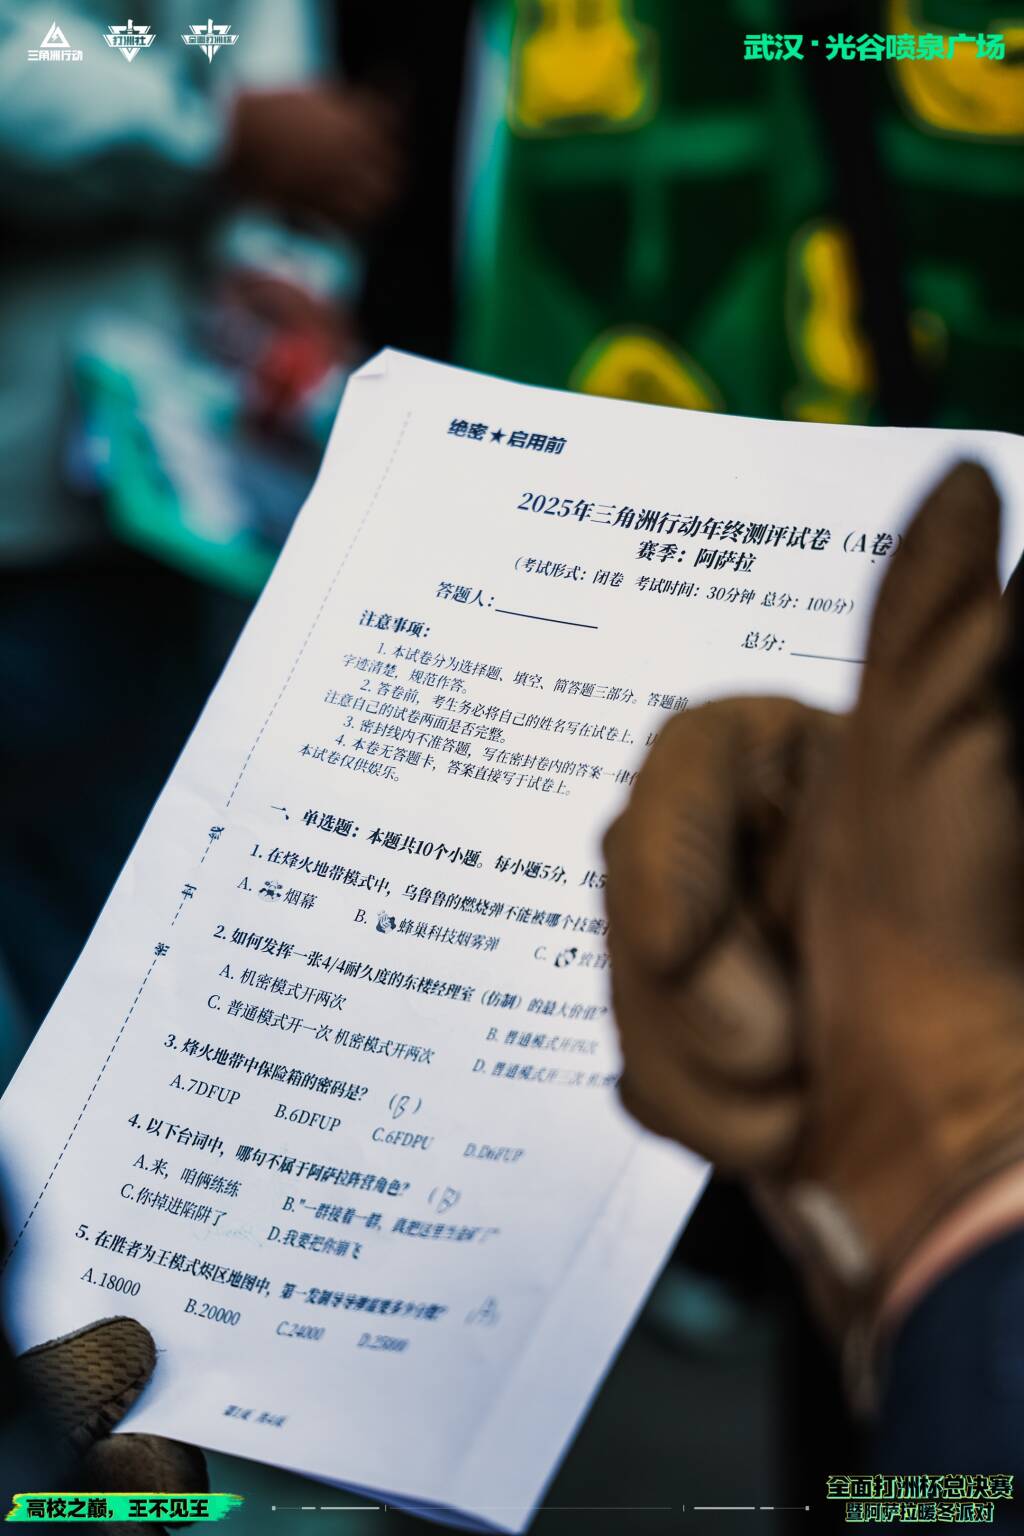 三角洲行动
打洲社
全面打洲杯
武汉·光谷喷泉广场
绝密★启用前
2025年三角洲行动年终测评试卷（A卷）
赛季：阿萨拉
（考试形式：闭卷 考试时间：30分钟 总分：100分）
答题人：
总分：
注意事项：
1. 本试卷分为选择题、填空、简答题三部分。答题前，
字迹清楚，规范作答。
2. 答卷前，考生务必将自己的姓名写在试卷上，
注意自己的试卷两面是否完整。
3. 密封线内不准答题，写在密封卷内的答案一律
4. 本卷无答题卡，答案直接写于试卷上。
本试卷仅供娱乐。
一、单选题：本题共10个小题。每小题5分，共5
1. 在烽火地带模式中，乌鲁鲁的燃烧弹不能被哪个技能
A. 烟幕 B. 蜂巢科技烟雾弹 C. 致盲
2. 如何发挥一张4/4耐久度的东楼经理室（仿制）的最大价值？
A. 机密模式开两次 B. 普通模式开四次
C. 普通模式开一次 机密模式开两次 D. 普通模式开三次 机密
3. 烽火地带中保险箱的密码是？（B）
A.7DFUP B.6DFUP C.6FDPU D.D6FUP
4. 以下台词中，哪句不属于阿萨拉阵营角色？（B）
A.来，咱俩练练 B."一群接着一群，真把这里当金矿了"
C.你掉进陷阱了 D.我要把你崩飞
5. 在胜者为王模式烬区地图中，第一发制导导弹需要多少分数？
A.18000 B.20000 C.24000 D.25000
线
订
高校之巅，王不见王
全面打洲杯总决赛
暨阿萨拉暖冬派对